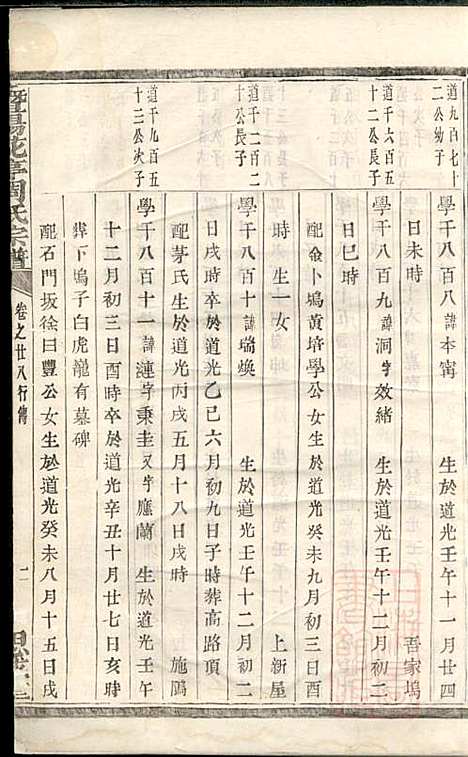 道九百七十二公幼子
學千八百八諱本甯 生於道光壬午十一月廿四
日未時 吾家塢
道千六百五十二公長子
學千八百九諱洞字效緒 生於道光壬午十二月初二
日巳時
配金卜塢黃培學公女生於道光癸未九月初三日酉
時生一女 上新屋
道千二百二十公長子
學千八百十諱瑞煥 生於道光壬午十二月初二
日戌時卒於道光乙巳六月初九日子時葬高路項
配茅氏生於道光丙戌五月十八日戌時 施鴈
道千九百五十二公次子
學千八百十一諱漣字秉圭又字應蘭 生於道光壬午
十二月初三日酉時卒於道光辛丑十月廿七日亥時
葬下塢子白虎龍有墓碑
配石門坂徐曰豐公女生於道光癸未八月十五日戌
暨陽花亭周氏宗譜
卷之廿八行傳
二